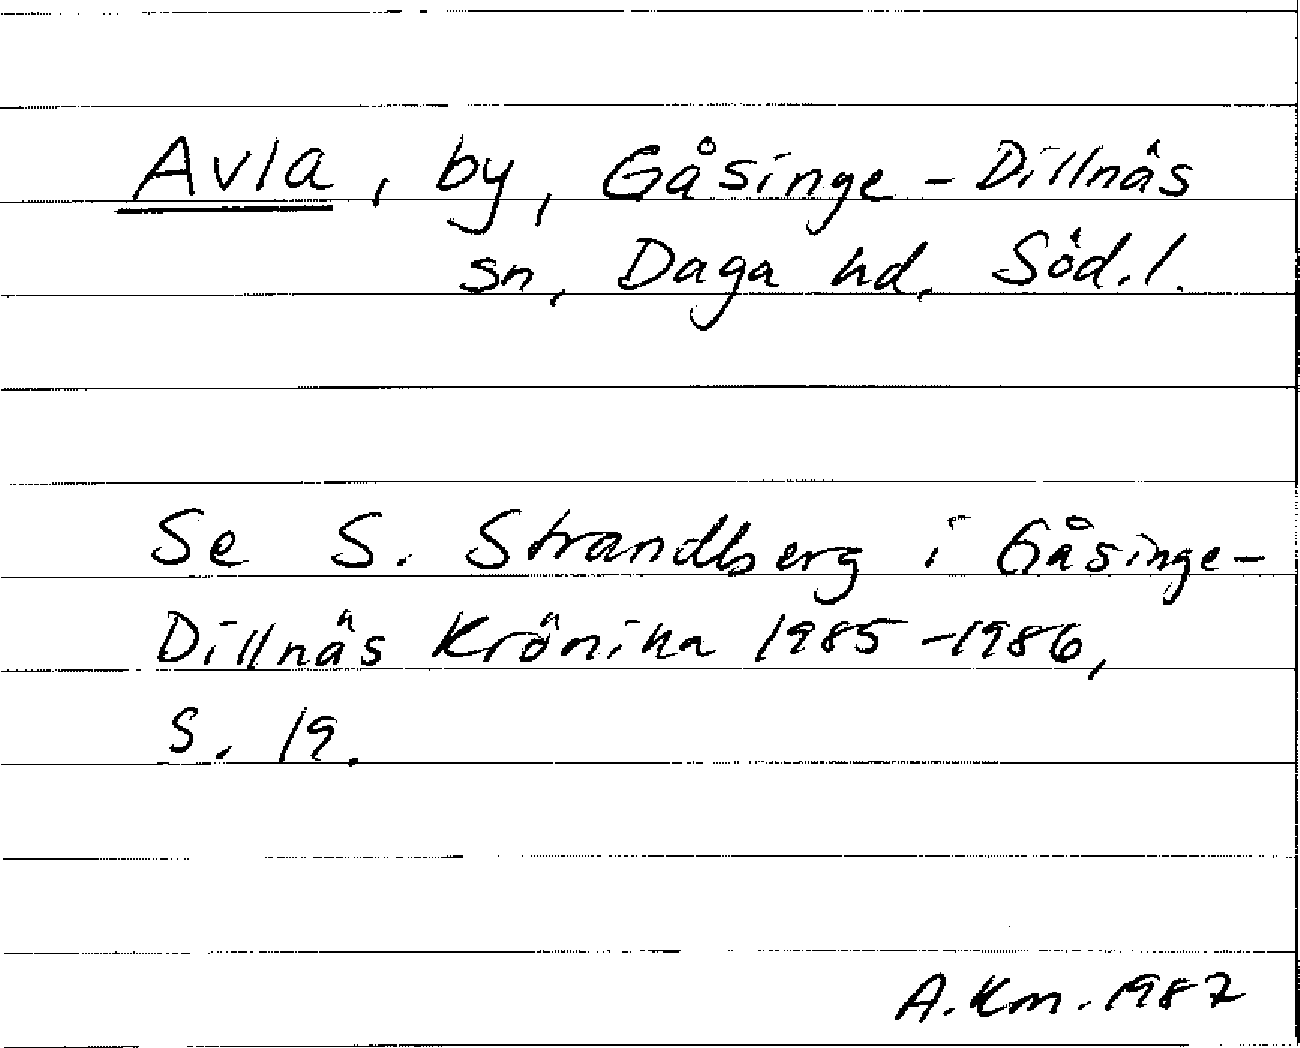 Avla, by, Gåsinge-Dillnäs
sn, Daga hd, Söd.l.
Se S. Strandberg i Gåsinge-
Dillnäs Krönika 1985-1986,
s. 19.
A.Km. 1987